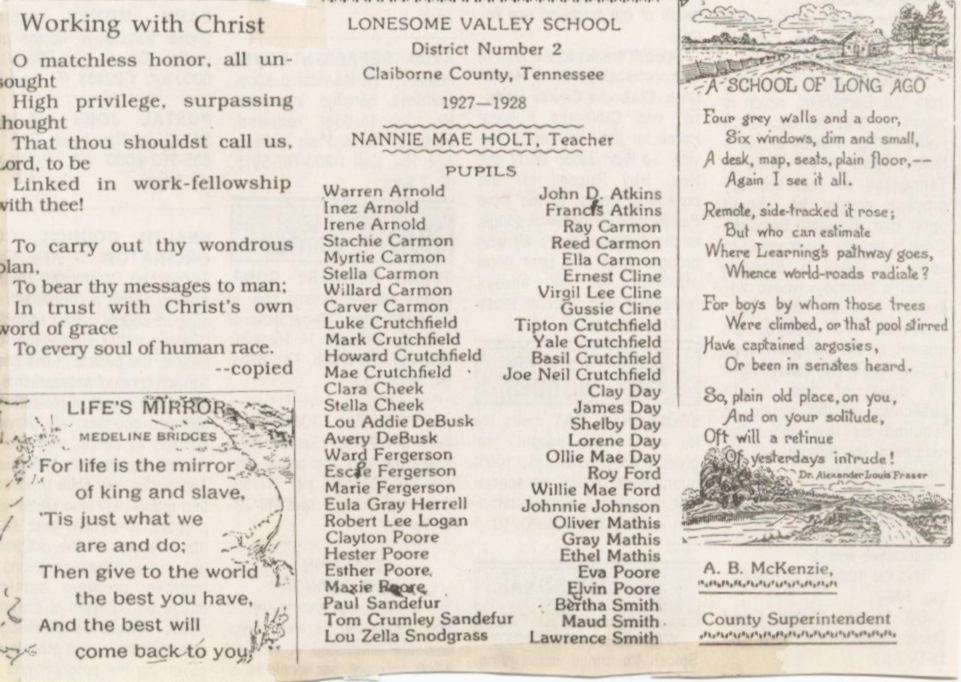 Working with Christ
O matchless honor, all un-
sought
High privilege, surpassing
thought
That thou shouldst call us,
Lord, to be
Linked in work-fellowship
with thee!
To carry out thy wondrous
plan,
To bear thy messages to man;
In trust with Christ's own
word of grace
To every soul of human race.
--copied
LIFE'S MIRROR
MEDELINE BRIDGES
For life is the mirror
of king and slave,
'Tis just what we
are and do;
Then give to the world
the best you have,
And the best will
come back to you.
LONESOME VALLEY SCHOOL
District Number 2
Claiborne County, Tennessee
1927—1928
NANNIE MAE HOLT, Teacher
PUPILS
Warren Arnold
Inez Arnold
Irene Arnold
Stachie Carmon
Myrtie Carmon
Stella Carmon
Willard Carmon
Carver Carmon
Luke Crutchfield
Mark Crutchfield
Howard Crutchfield
Mae Crutchfield
Clara Cheek
Stella Cheek
Lou Addie DeBusk
Avery DeBusk
Ward Fergerson
Fergerson
Marie Fergerson
Eula Gray Herrell
Robert Lee Logan
Clayton Poore
Hester Poore
Esther Poore
Maxie Poore
Paul Sandefur
Tom Crumley Sandefur
Lou Zella Snodgrass
John D. Atkins
Francis Atkins
Ray Carmon
Reed Carmon
Ella Carmon
Ernest Cline
Virgil Lee Cline
Gussie Cline
Tipton Crutchfield
Yale Crutchfield
Basil Crutchfield
Joe Neil Crutchfield
Clay Day
James Day
Shelby Day
Lorene Day
Ollie Mae Day
Roy Ford
Willie Mae Ford
Johnnie Johnson
Oliver Mathis
Gray Mathis
Ethel Mathis
Eva Poore
Elvin Poore
Bertha Smith
Maud Smith
Lawrence Smith
A SCHOOL OF LONG AGO
Four grey walls and a door,
Six windows, dim and small,
A desk, map, seats, plain floor,--
Again I see it all.
Remote, side-tracked it rose;
But who can estimate
Where Learning's pathway goes,
Whence world-roads radiate?
For boys by whom those trees
Were climbed, or that pool stirred
Have captained argosies,
Or been in senates heard.
So, plain old place, on you,
And on your solitude,
Oft will a retinue
Of yesterdays intrude!
Dr. Alexander Louis Fraser
A. B. McKenzie,
County Superintendent